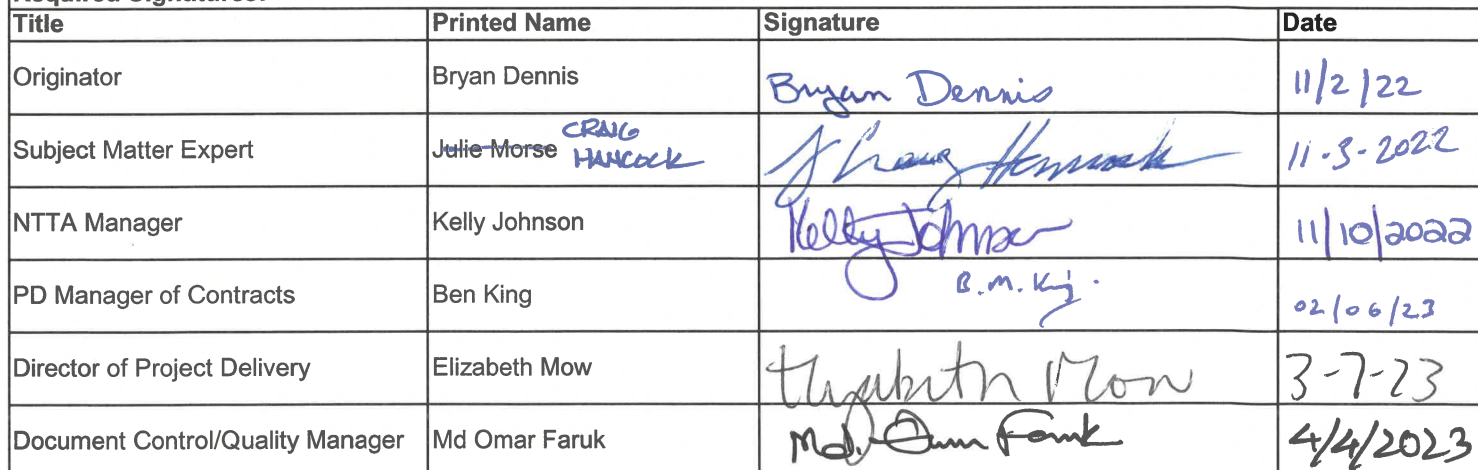 Required Signatures:
Title Printed Name Signature Date
Originator Bryan Dennis Bryan Dennis 11/2/22
Subject Matter Expert Julie Morse CRAIG HANCOCK J Craig Hancock 11-3-2022
NTTA Manager Kelly Johnson Kelly Johnson 11/10/2022
PD Manager of Contracts Ben King B.M. King. 02/06/23
Director of Project Delivery Elizabeth Mow Elizabeth Mow 3-7-23
Document Control/Quality Manager Md Omar Faruk Md. Omar Faruk 4/4/2023